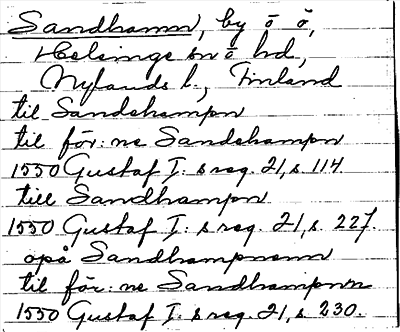 Sandhamn, by o ö,
Helsinge sn o hd,
Nylands l., Finland
til Sandehampn
til för:ne Sandehampn
1550 Gustaf I:s reg. 21, s 114.
till Sandhampn
1550 Gustaf I:s reg. 21, s. 227.
opå Sandhampnenn
til för:ne Sandhampnen
1550 Gustaf I:s reg. 21, s. 230.